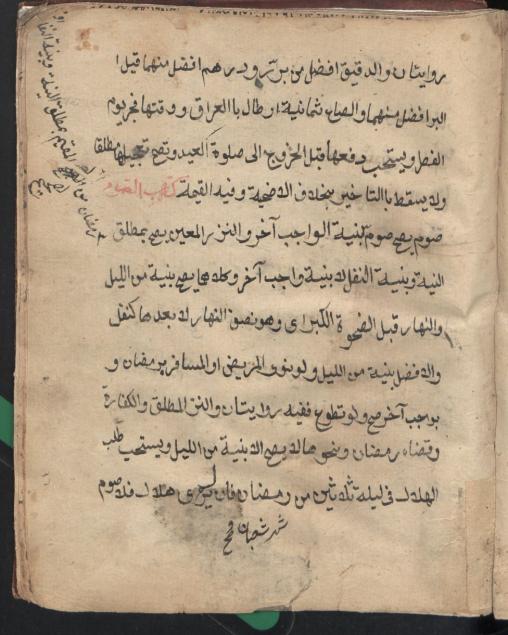 روايتان والدقيق افضل من بر ودرهم افضل منهما قيل ا
البر افضل منهما والصاع ثمانية ارطال باالعراق ووقتها فجر يوم
الفطر ويستحب دفعها قبل الخروج الى صلوة العيد ويصح تعجيلها مطلقا
ولا يسقط باالتاخير بخلاف الاضحية وفيه القيمة كتاب الصوم
صوم يصح صومه بنية الواجب آخر والنذر المعين يصح بمطلق
النية وبنية النفل لا بنية واجب آخر وكلاهما يصح بنية من الليل
والنهار قبل الضحوة الكبراى وهو نصف النهار لا بعدها كنفل
والافضل بنية من الليل ولو نوى المريض او المسافر برمضان و
بوجب آخر صح ولو تطوع ففيه روايتان والنذر المطلق والكفارة
وقضاء رمضان ونحوها لا يصح الا بنية من الليل ويستحب طلب
الهلال فى ليلة ثلاثين من رمضان فان لم يرى هلال فلا صوم
شهر شعبان صح
رمضان من المقيم بمطلق النية وبنية النفل
صح